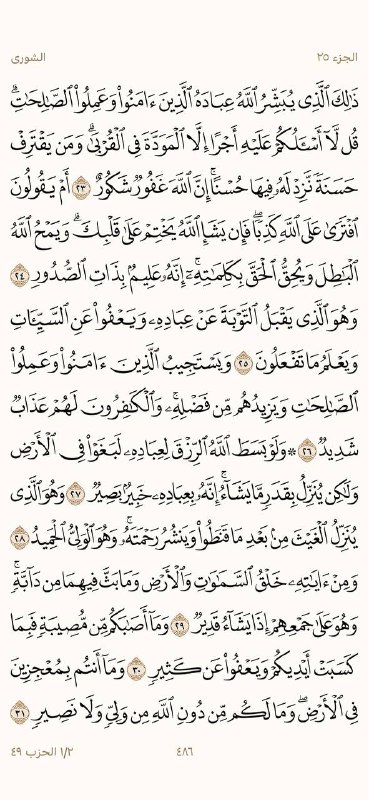 الجزء ٢٥
الشورى
ذَٰلِكَ ٱلَّذِى يُبَشِّرُ ٱللَّهُ عِبَادَهُ ٱلَّذِينَ ءَامَنُوا۟ وَعَمِلُوا۟ ٱلصَّـٰلِحَـٰتِ ۗ
قُل لَّآ أَسْـَٔلُكُمْ عَلَيْهِ أَجْرًا إِلَّا ٱلْمَوَدَّةَ فِى ٱلْقُرْبَىٰ ۗ وَمَن يَقْتَرِفْ
حَسَنَةً نَّزِدْ لَهُۥ فِيهَا حُسْنًا ۚ إِنَّ ٱللَّهَ غَفُورٌ شَكُورٌ ٢٣ أَمْ يَقُولُونَ
ٱفْتَرَىٰ عَلَى ٱللَّهِ كَذِبًا ۖ فَإِن يَشَإِ ٱللَّهُ يَخْتِمْ عَلَىٰ قَلْبِكَ ۗ وَيَمْحُ ٱللَّهُ
ٱلْبَـٰطِلَ وَيُحِقُّ ٱلْحَقَّ بِكَلِمَـٰتِهِۦٓ ۚ إِنَّهُۥ عَلِيمٌۢ بِذَاتِ ٱلصُّدُورِ ٢٤
وَهُوَ ٱلَّذِى يَقْبَلُ ٱلتَّوْبَةَ عَنْ عِبَادِهِۦ وَيَعْفُوا۟ عَنِ ٱلسَّيِّـَٔاتِ
وَيَعْلَمُ مَا تَفْعَلُونَ ٢٥ وَيَسْتَجِيبُ ٱلَّذِينَ ءَامَنُوا۟ وَعَمِلُوا۟
ٱلصَّـٰلِحَـٰتِ وَيَزِيدُهُم مِّن فَضْلِهِۦ ۚ وَٱلْكَـٰفِرُونَ لَهُمْ عَذَابٌ
شَدِيدٌ ٢٦ ۞ وَلَوْ بَسَطَ ٱللَّهُ ٱلرِّزْقَ لِعِبَادِهِۦ لَبَغَوْا۟ فِى ٱلْأَرْضِ
وَلَـٰكِن يُنَزِّلُ بِقَدَرٍ مَّا يَشَآءُ ۚ إِنَّهُۥ بِعِبَادِهِۦ خَبِيرٌۢ بَصِيرٌ ٢٧ وَهُوَ ٱلَّذِى
يُنَزِّلُ ٱلْغَيْثَ مِنۢ بَعْدِ مَا قَنَطُوا۟ وَيَنشُرُ رَحْمَتَهُۥ ۚ وَهُوَ ٱلْوَلِىُّ ٱلْحَمِيدُ ٢٨
وَمِنْ ءَايَـٰتِهِۦ خَلْقُ ٱلسَّمَـٰوَٰتِ وَٱلْأَرْضِ وَمَا بَثَّ فِيهِمَا مِن دَآبَّةٍ ۚ
وَهُوَ عَلَىٰ جَمْعِهِمْ إِذَا يَشَآءُ قَدِيرٌ ٢٩ وَمَآ أَصَـٰبَكُم مِّن مُّصِيبَةٍ فَبِمَا
كَسَبَتْ أَيْدِيكُمْ وَيَعْفُوا۟ عَن كَثِيرٍ ٣٠ وَمَآ أَنتُم بِمُعْجِزِينَ
فِى ٱلْأَرْضِ ۖ وَمَا لَكُم مِّن دُونِ ٱللَّهِ مِن وَلِىٍّ وَلَا نَصِيرٍ ٣١
٤٨٦
١/٢ الحزب ٤٩